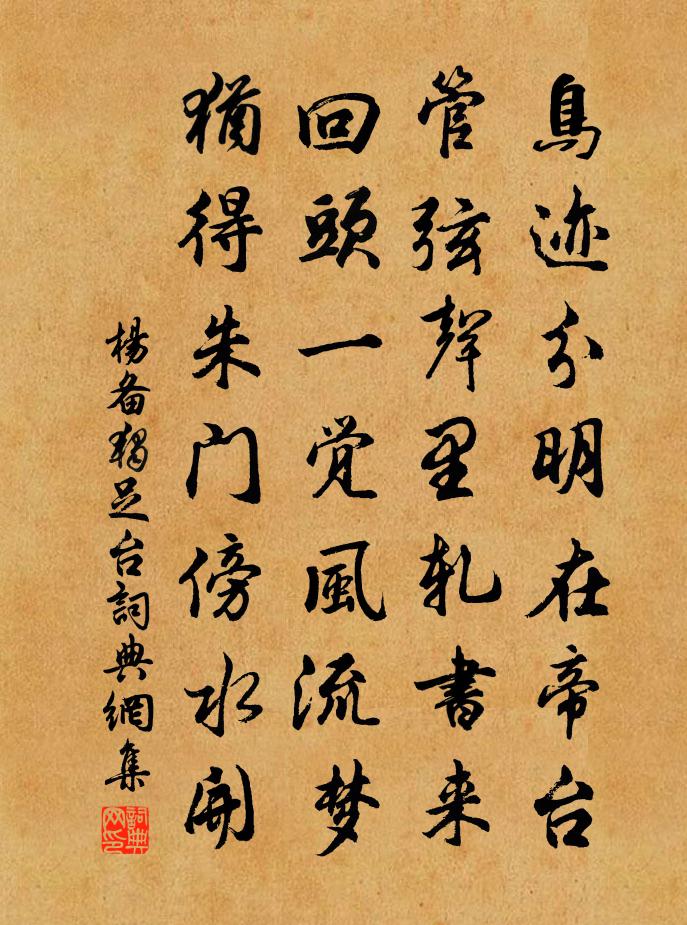 鳥迹分明在帝台
管弦聲里軋書来
回頭一覺風流梦
猶得朱门傍水開
楊备獨足台詞典網集
詞典网印